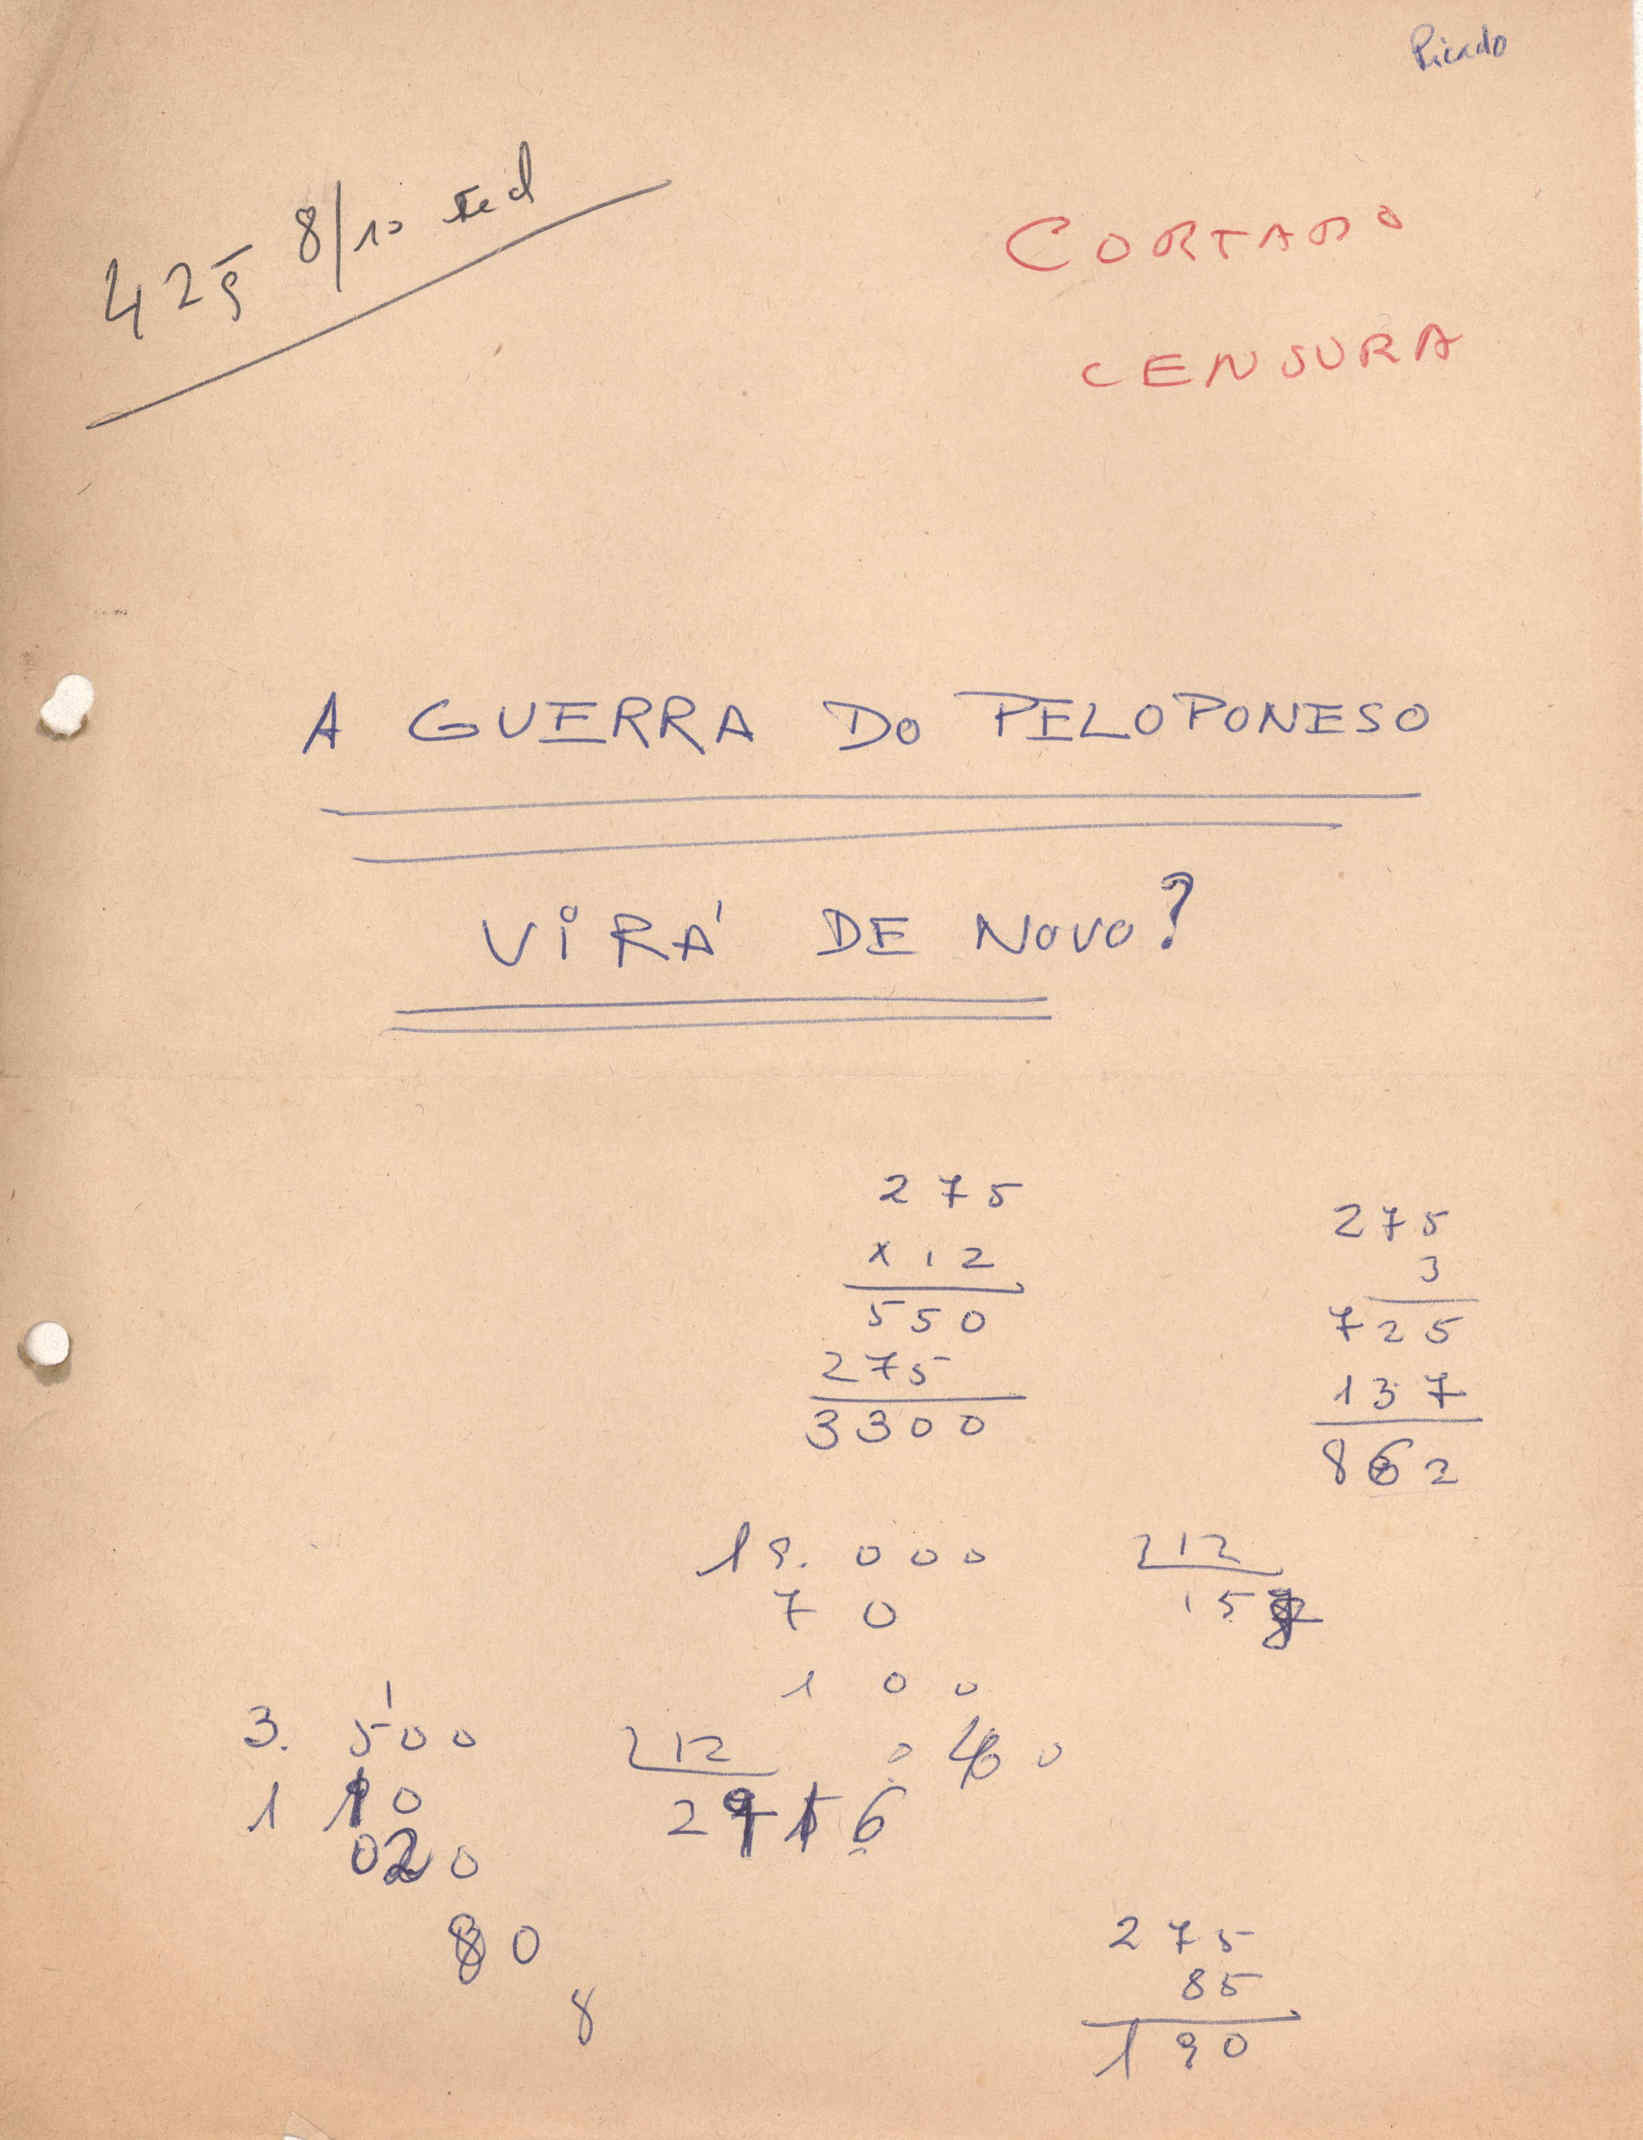 Picado
425 8/10 Red
CORTADO
CENSURA
A GUERRA DO PELOPONESO
VIRÁ DE NOVO?
275
x 12
550
275
3300
275
3
725
137
862
19.000 12
70 15
100
3.500 12
1 10 2916
020
80
8
275
85
190